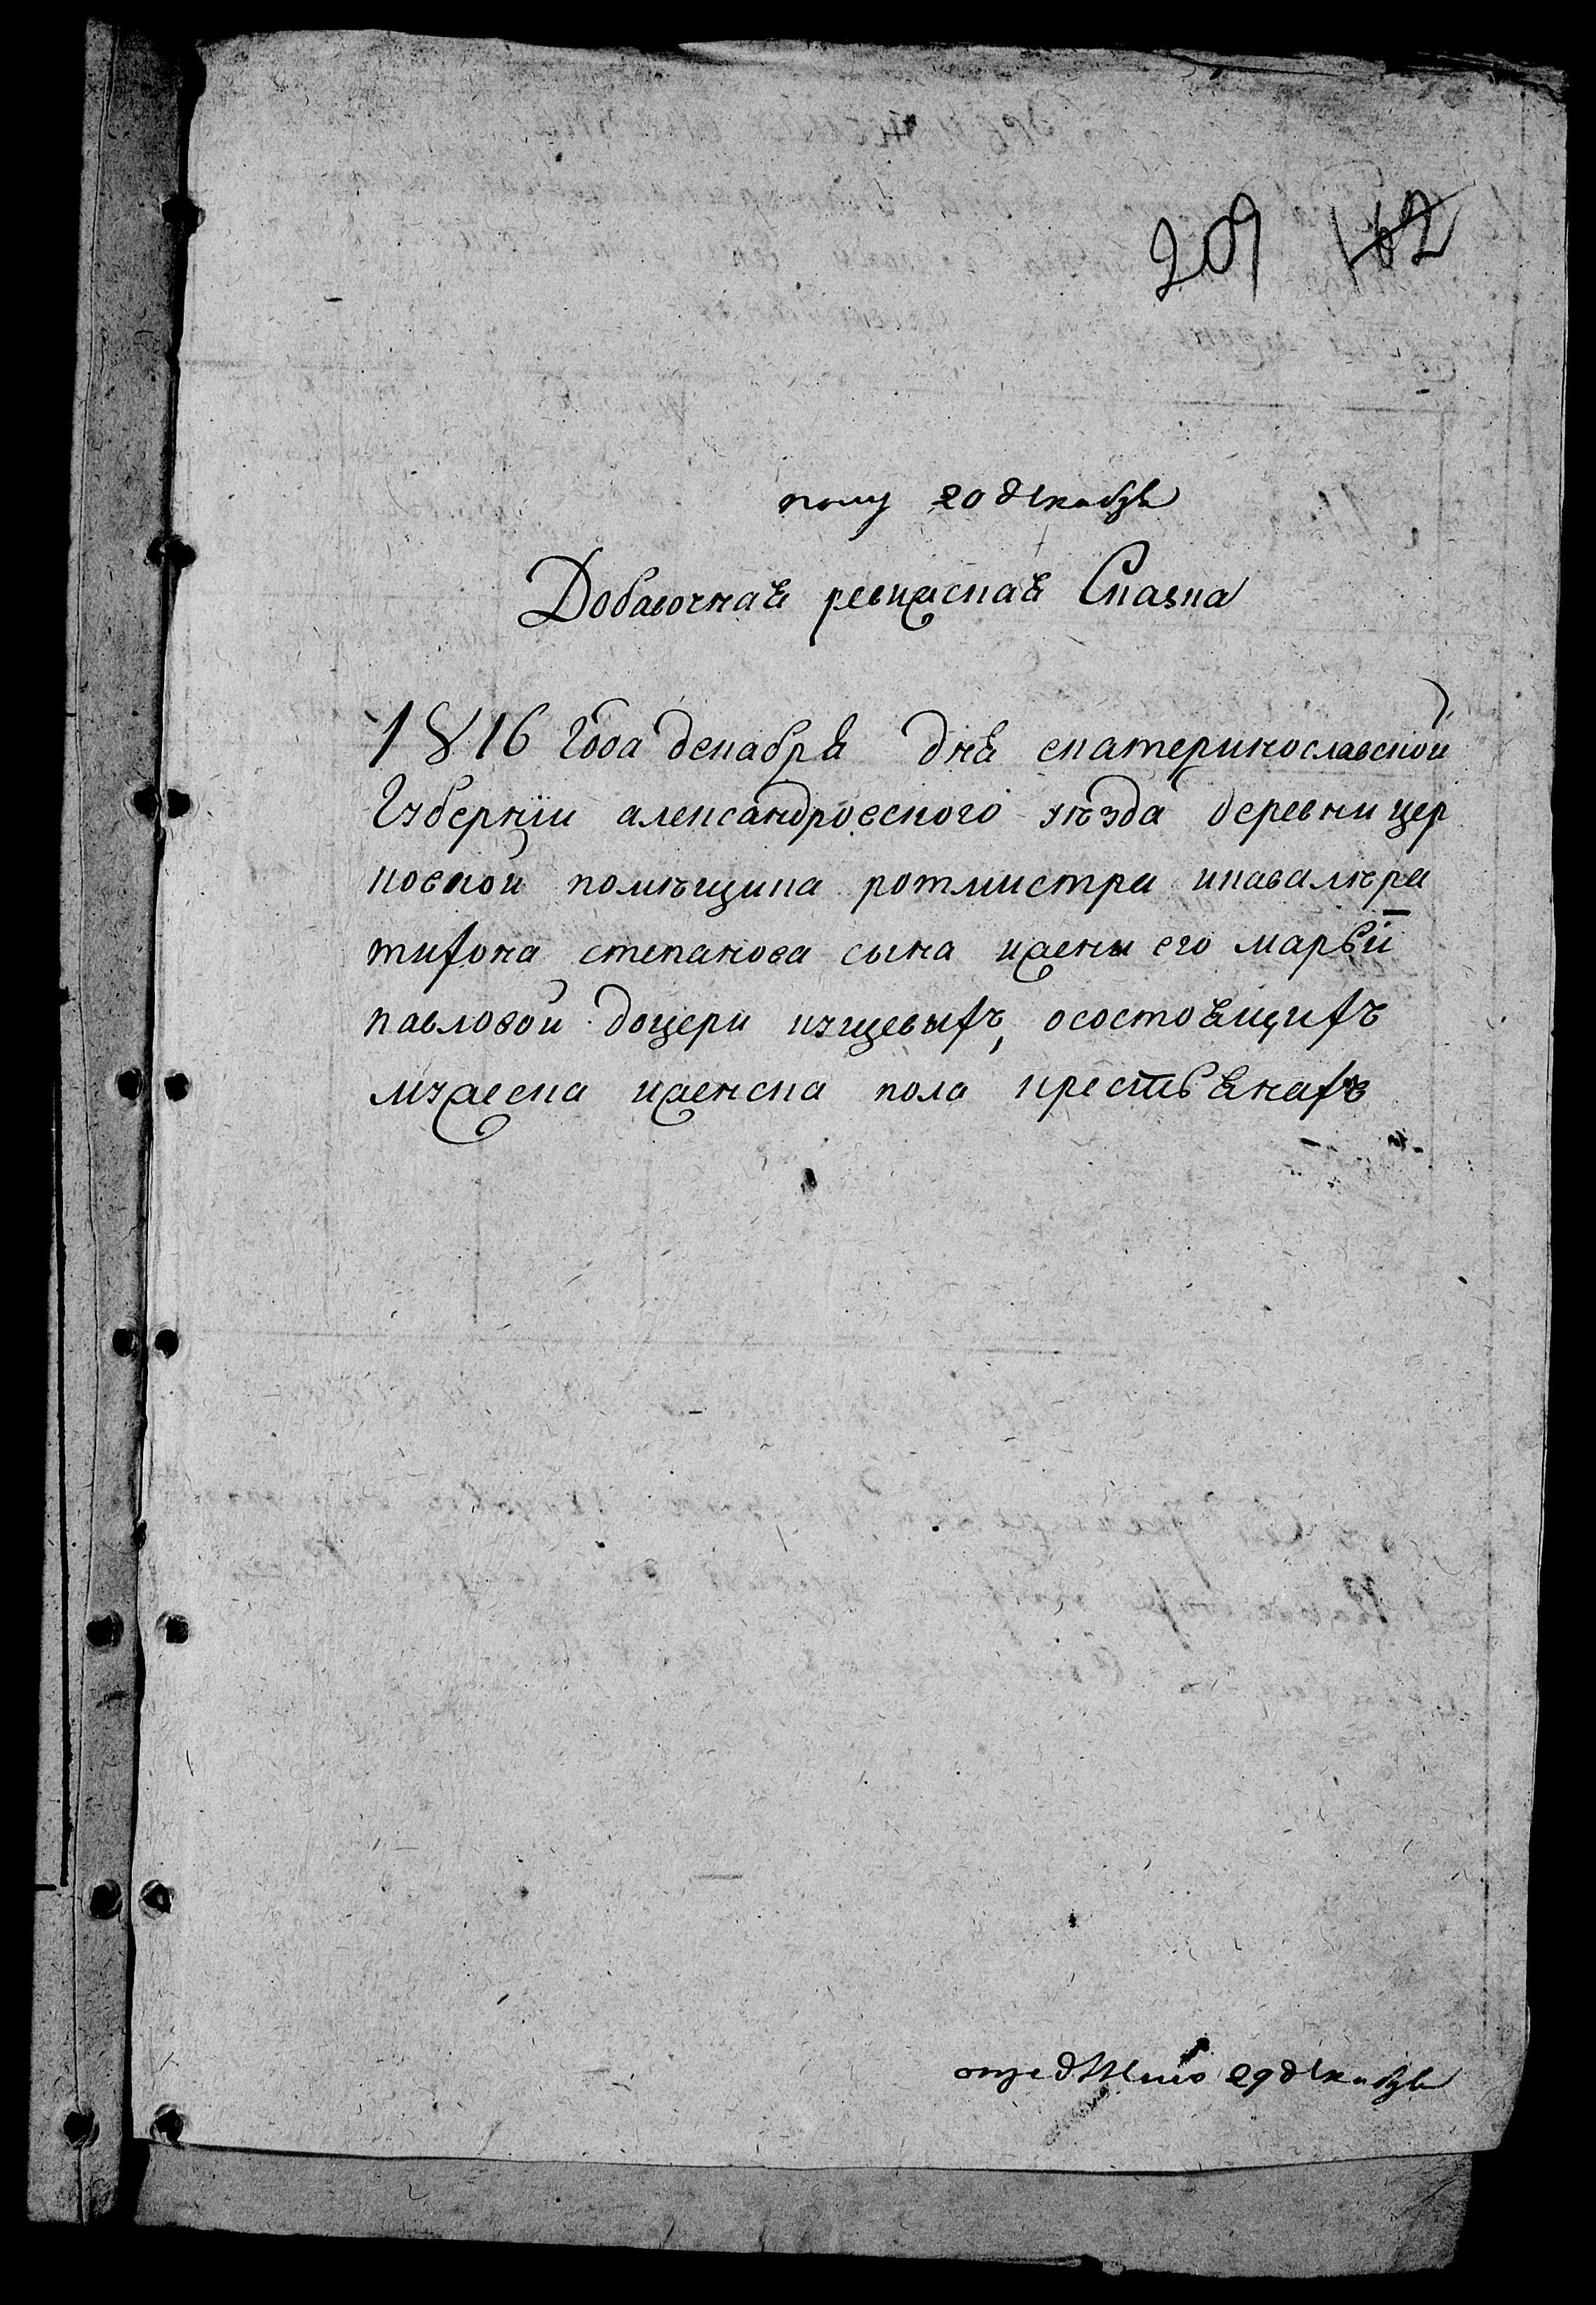 209 162
полу 20 декабря
Добавочная ревижская Сказка
1816 года декабря дня екатеринославской
Губернiи александровского уѣзда деревни цер
ковной помѣщика ротмистра икавалѣра
тихона степанова сына ижены его марьи
павловой дочери куцевыхъ, осостоящихъ
мужеска иженска пола крестьянахъ
29 декабря